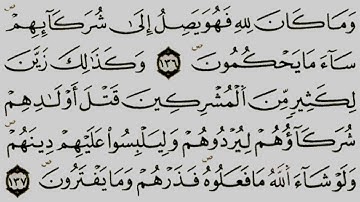 وَمَا كَانَ لِلَّهِ فَهُوَ يَصِلُ إِلَىٰ شُرَكَآئِهِمْ
سَآءَ مَا يَحْكُمُونَ ١٣٦ وَكَذَٰلِكَ زَيَّنَ
لِكَثِيرٍ مِّنَ ٱلْمُشْرِكِينَ قَتْلَ أَوْلَٰدِهِمْ
شُرَكَآؤُهُمْ لِيُرْدُوهُمْ وَلِيَلْبِسُوا۟ عَلَيْهِمْ دِينَهُمْ
وَلَوْ شَآءَ ٱللَّهُ مَا فَعَلُوهُ فَذَرْهُمْ وَمَا يَفْتَرُونَ ١٣٧